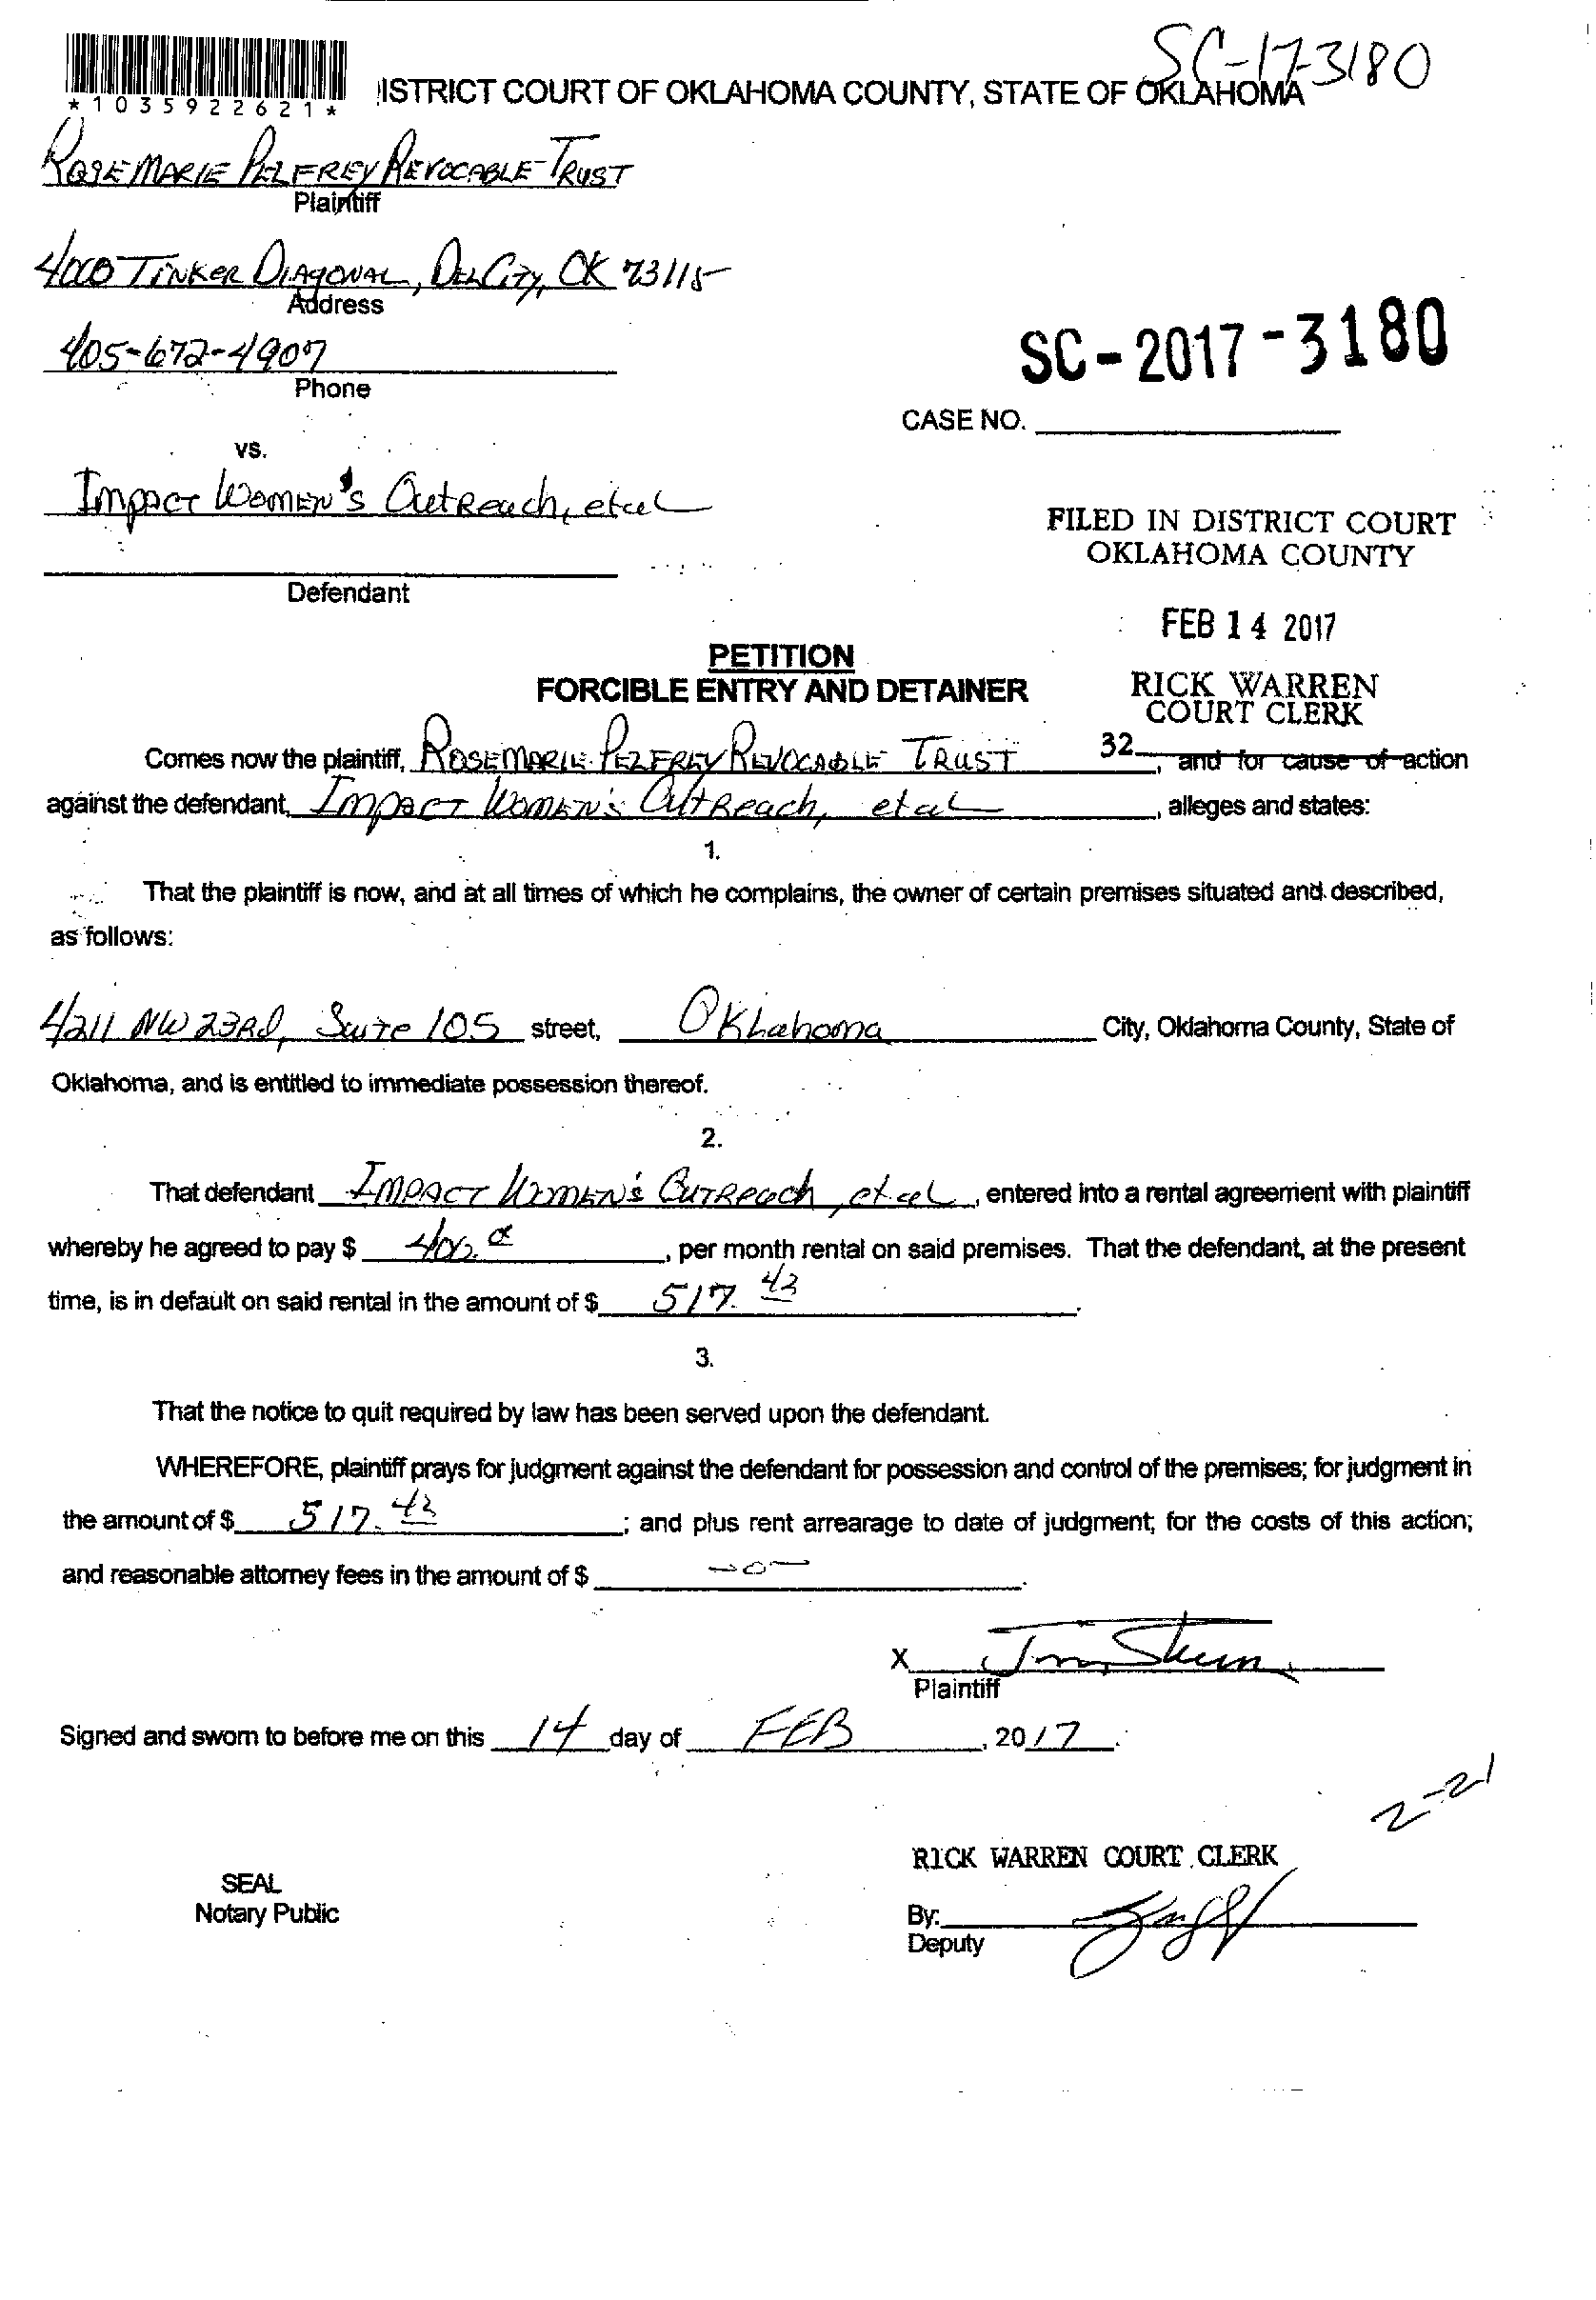 SC-17-3180
*1035922621*
ISTRICT COURT OF OKLAHOMA COUNTY, STATE OF OKLAHOMA
ROSEMARIE PELFREY REVOCABLE TRUST
Plaintiff
4000 TINKER DIAGONAL, DEL CITY, OK 73115
Address
405-672-4907
Phone
SC-2017-3180
CASE NO.
vs.
IMPACT WOMEN'S OutReach, et al
FILED IN DISTRICT COURT
OKLAHOMA COUNTY
Defendant
FEB 14 2017
PETITION
FORCIBLE ENTRY AND DETAINER
RICK WARREN
COURT CLERK
32
Comes now the plaintiff, ROSEMARIE PELFREY REVOCABLE TRUST, and for cause of action
against the defendant, IMPACT WOMEN'S OutReach, et al, alleges and states:
1.
That the plaintiff is now, and at all times of which he complains, the owner of certain premises situated and described,
as follows:
4211 NW 23Rd, Suite 105 street, Oklahoma City, Oklahoma County, State of
Oklahoma, and is entitled to immediate possession thereof.
2.
That defendant IMPACT WOMEN'S OUTReach, et al, entered into a rental agreement with plaintiff
whereby he agreed to pay $ , per month rental on said premises. That the defendant, at the present
time, is in default on said rental in the amount of $ 517.43.
3.
That the notice to quit required by law has been served upon the defendant.
WHEREFORE, plaintiff prays for judgment against the defendant for possession and control of the premises; for judgment in
the amount of $ 517.43; and plus rent arrearage to date of judgment; for the costs of this action;
and reasonable attorney fees in the amount of $ -0-.
X
Plaintiff
Signed and sworn to before me on this 14 day of FEB, 2017.
2-21
RICK WARREN COURT CLERK
SEAL
Notary Public
By:
Deputy